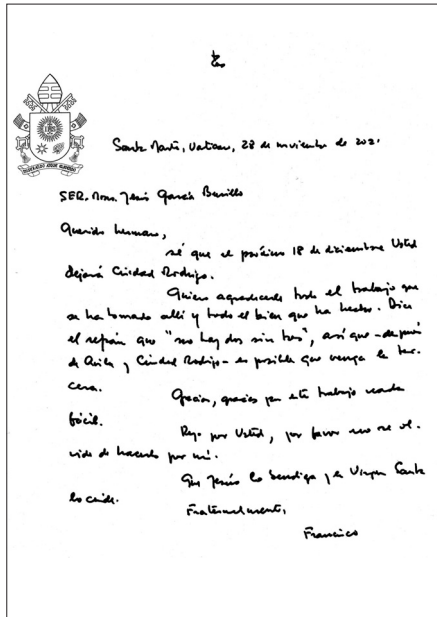 Santa Marta, Vaticano, 28 de noviembre de 2021
SER. Mons. Jesús García Burillo
Querido hermano,
sé que el próximo 18 de diciembre Usted
dejará Ciudad Rodrigo.
Quiero agradecerle todo el trabajo que
se ha tomado allí y todo el bien que ha hecho. Dice
el refrán que "no hay dos sin tres", así que - después
de Ávila y Ciudad Rodrigo - es posible que venga la ter-
cera.
Gracias, gracias por este trabajo nada
fácil.
Rezo por Usted, por favor no se ol-
vide de hacerlo por mí.
Que Jesús lo bendiga y la Virgen Santa
lo cuide.
Fraternalmente,
Francisco